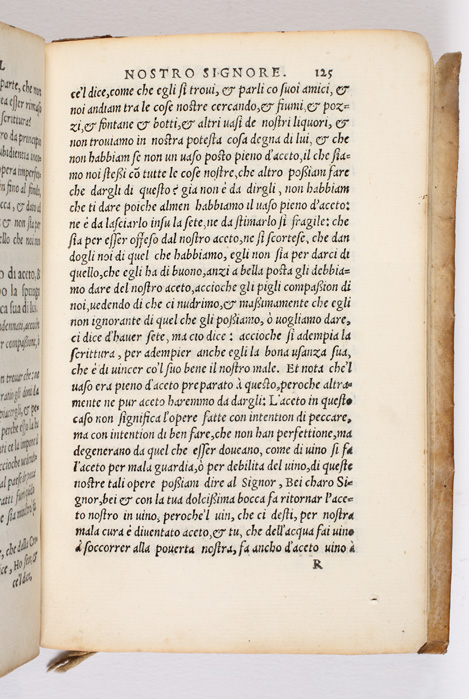 NOSTRO SIGNORE. 125
ce'l dice, come che egli si troui, & parli co suoi amici, &
noi andiam tra le cose nostre cercando, & fiumi, & poz-
zi, & fontane & botti, & altri uasi de nostri liquori, &
non trouiamo in nostra potesta cosa degna di lui, & che
non habbiam se non un uaso posto pieno d'aceto, il che sia-
mo noi steßi cō tutte le cose nostre, che altro poßiam fare
che dargli di questo è gia non è da dirgli, non habbiam
che ti dare poiche almen habbiamo il uaso pieno d'aceto:
ne è da lasciarlo insu la sete, ne da stimarlo si fragile: che
sia per esser offeso dal nostro aceto, ne si scortese, che dan
dogli noi di quel che habbiamo, egli non sia per darci di
quello, che egli ha di buono, anzi a bella posta gli debbia-
mo dare del nostro aceto, accioche gli pigli compaßion di
noi, uedendo di che ci nudrimo, & maßimamente che egli
non ignorante di quel che gli poßiamo, ò uogliamo dare,
ci dice d'hauer sete, ma cio dice: accioche si adempia la
scrittura, per adempier anche egli la bona usanza sua,
che è di uincer co'l suo bene il nostro male. Et nota che'l
uaso era pieno d'aceto preparato à questo, peroche altra-
mente ne pur aceto haremmo da dargli: L'aceto in questo
caso non significa l'opere fatte con intention di peccare,
ma con intention di ben fare, che non han perfettione, ma
degenerano da quel che esser doueano, come di uino si fa
l'aceto per mala guardia, ò per debilita del uino, di queste
nostre tali opere poßiam dire al Signor, Bei charo Si-
gnor, bei & con la tua dolcißima bocca fa ritornar l'ace-
to nostro in uino, peroche'l uin, che ci desti, per nostra
mala cura è diuentato aceto, & tu, che dell'acqua fai uino
à soccorrer alla pouerta nostra, fa ancho d'aceto uino à
R